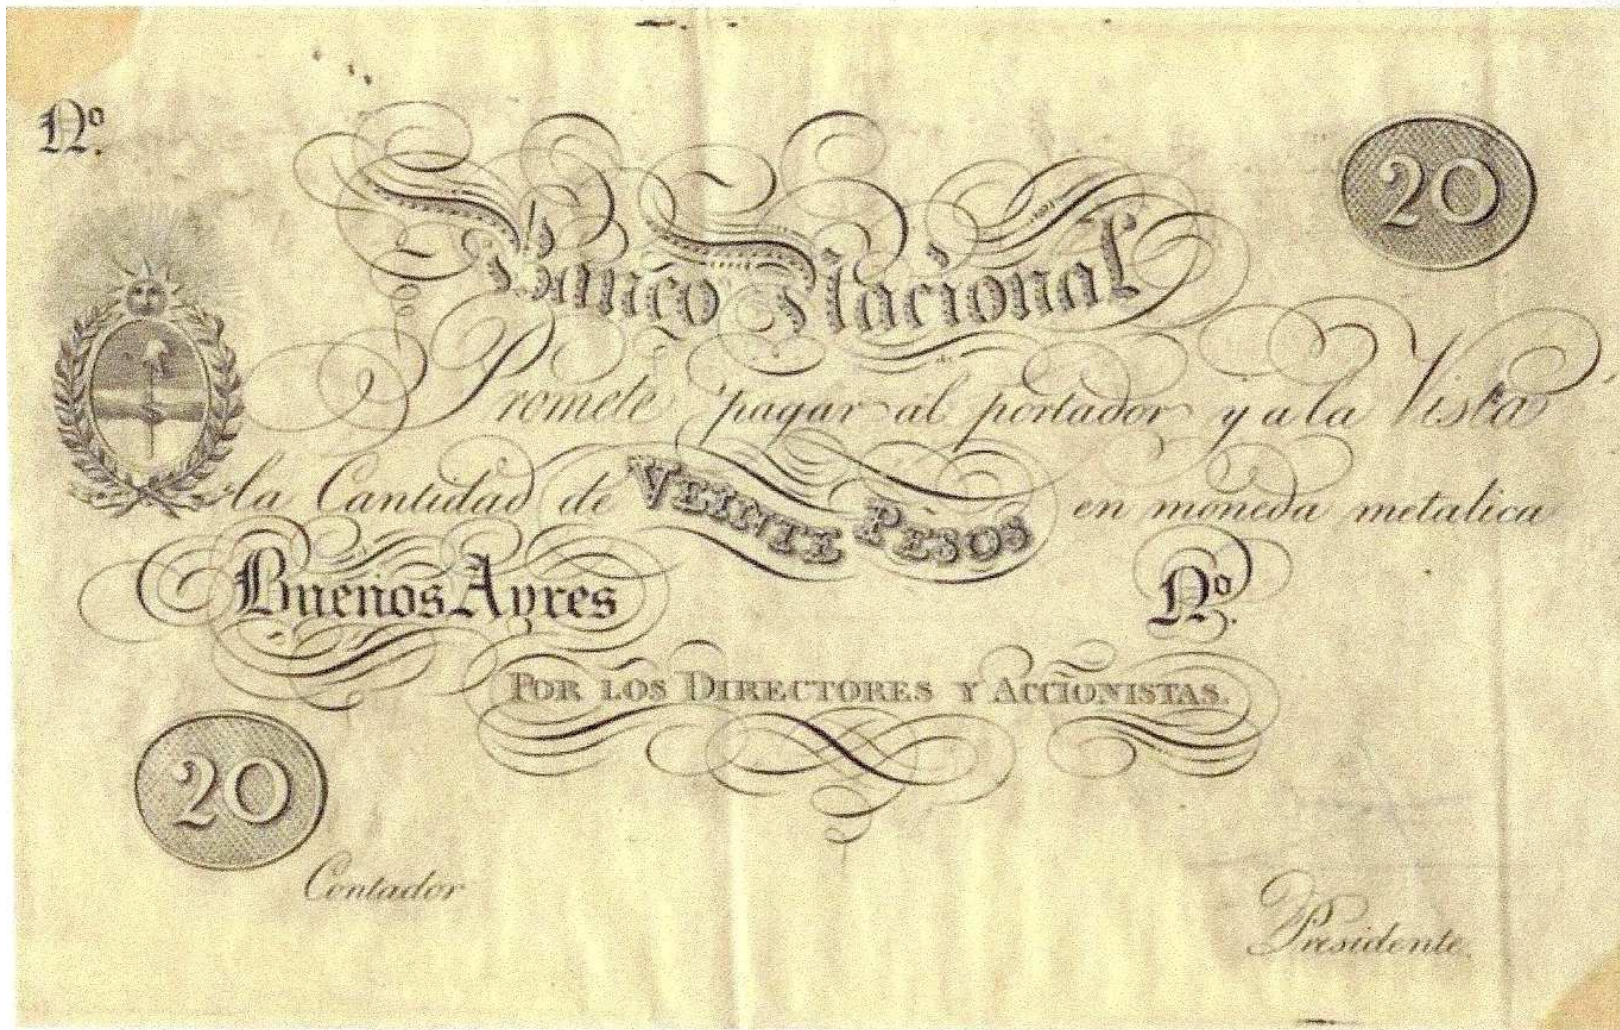 Nº
20
Banco Nacional
Promete pagar al portador y a la Vista
la Cantidad de VEINTE PESOS en moneda metalica
Buenos Ayres Nº
POR LOS DIRECTORES Y ACCIONISTAS.
20
Contador
Presidente.